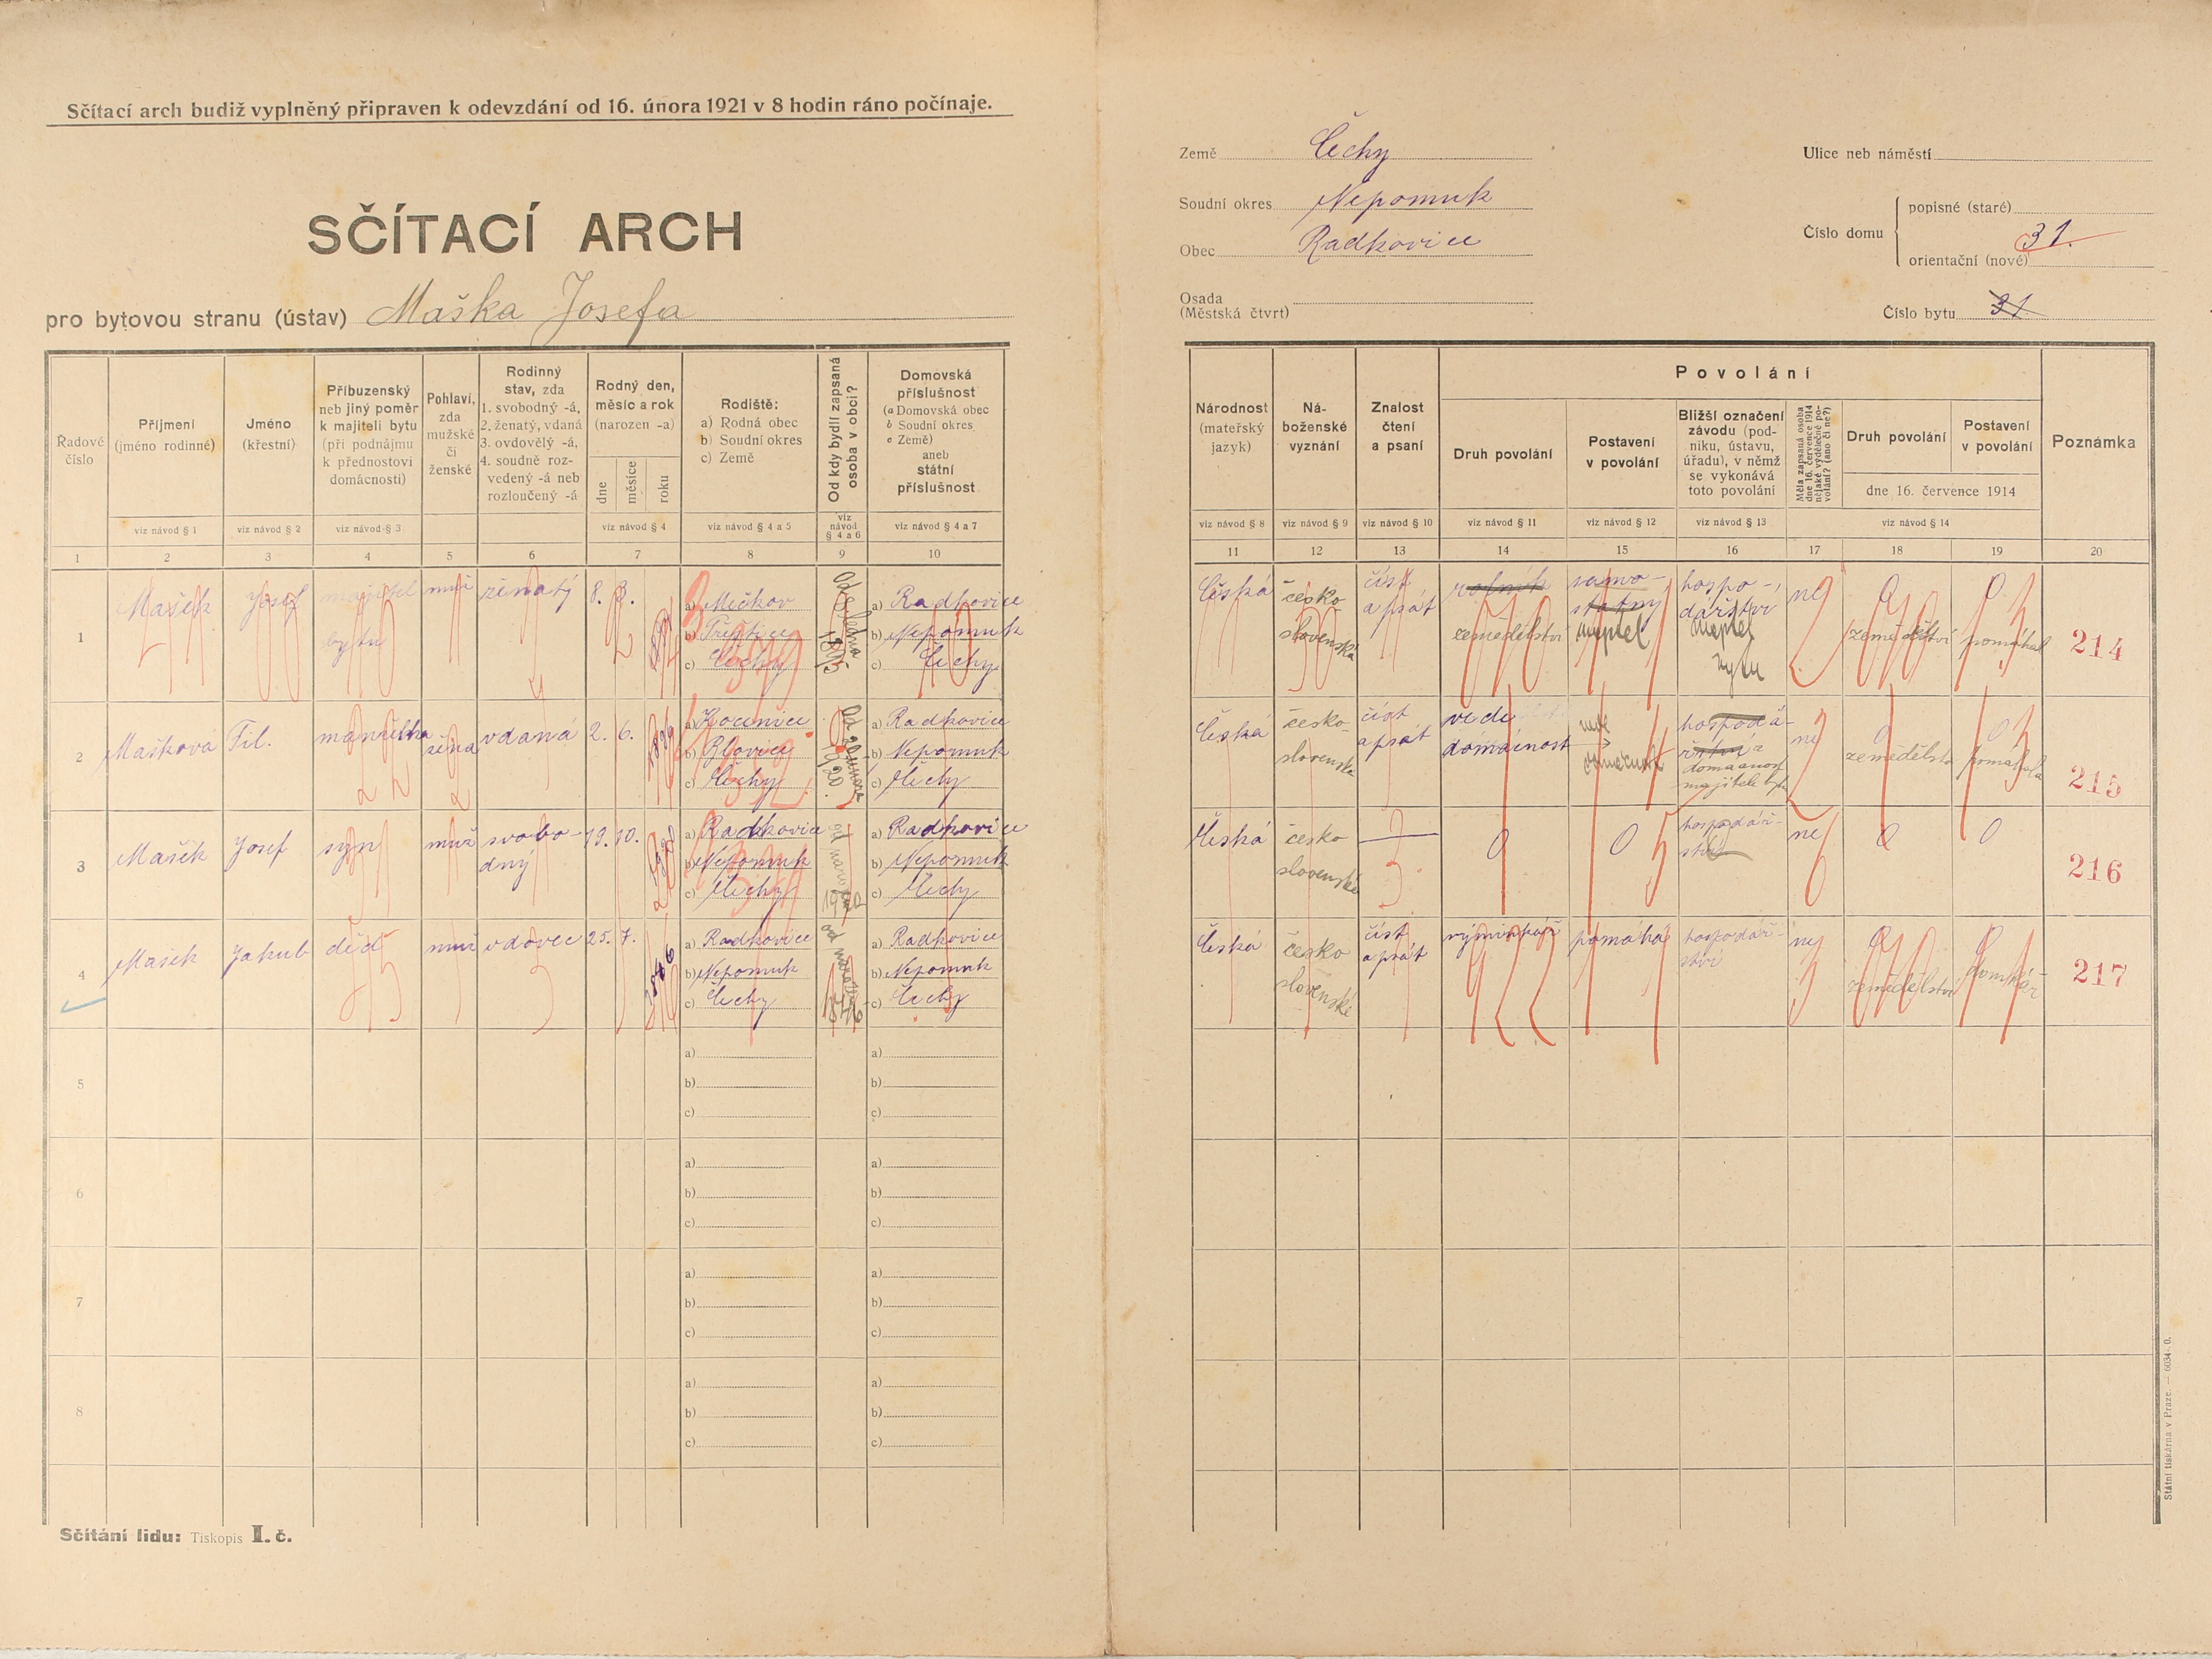 Sčítací arch budiž vyplněný připraven k odevzdání od 16. února 1921 v 8 hodin ráno počínaje.
SČÍTACÍ ARCH
pro bytovou stranu (ústav) Maška Josefa
Země Čechy
Soudní okres Nepomuk
Obec Radkovice
Osada
(Městská čtvrť)
Ulice neb náměstí
Číslo domu
popisné (staré)
31.
orientační (nové)
Číslo bytu 31
Řadové číslo
Příjmení (jméno rodinné)
Jméno (křestní)
Příbuzenský neb jiný poměr k majiteli bytu (při podnájmu k přednostovi domácnosti)
Pohlaví, zda mužské či ženské
Rodinný stav, zda 1. svobodný -á, 2. ženatý, vdaná 3. ovdovělý -á, 4. soudně rozvedený -á neb rozloučený -á
Rodný den, měsíc a rok (narozen -a)
dne měsíce roku
Rodiště: a) Rodná obec b) Soudní okres c) Země
Od kdy bydlí zapsaná osoba v obci?
Domovská příslušnost (a Domovská obec b Soudní okres c Země) aneb státní příslušnost
viz návod § 1 viz návod § 2 viz návod § 3 viz návod § 4 viz návod § 4 a 5 viz návod § 4 a 6 viz návod § 4 a 7
1 2 3 4 5 6 7 8 9 10
Národnost (mateřský jazyk)
Náboženské vyznání
Znalost čtení a psaní
Povolání
Druh povolání
Postavení v povolání
Bližší označení závodu (podniku, ústavu, úřadu), v němž se vykonává toto povolání
Měla zapsaná osoba dne 16. července 1914 nějaké výdělečné povolání? (ano či ne?)
Druh povolání
Postavení v povolání
dne 16. července 1914
Poznámka
viz návod § 8 viz návod § 9 viz návod § 10 viz návod § 11 viz návod § 12 viz návod § 13 viz návod § 14
11 12 13 14 15 16 17 18 19 20
1 Mašek Josef majitel bytu muž ženatý 8. 3.
a) Mečkov
b) Přeštice
c) Čechy
a) Radkovice
b) Nepomuk
c) Čechy
Česká česko slovenská číst a psát rolník zemědělství samostatný hospodářství ne 0 zemědělství 0 pomáhal 214
2 Mašková Fil. manželka žena vdaná 2. 6.
a) Kocenice
b) Blovice
c) Čechy
1920.
a) Radkovice
b) Nepomuk
c) Čechy
Česká česko slovenská číst a psát vede domácnost domácnost majitele bytu ne 0 zemědělství 0 pomáhala 215
3 Mašek Josef syn muž svobodný 19. 10.
a) Radkovice
b) Nepomuk
c) Čechy
a) Radkovice
b) Nepomuk
c) Čechy
Česká česko slovenské 0 0 hospodářství ne 0 0 216
4 Mašek Jakub děd muž vdovec 25. 7.
a) Radkovice
b) Nepomuk
c) Čechy
a) Radkovice
b) Nepomuk
c) Čechy
Česká česko slovenské číst a psát výminkář pomáhá hospodářství ne 0 zemědělství 0 domkář 217
5
a)
b)
c)
a)
b)
c)
6
a)
b)
c)
a)
b)
c)
7
a)
b)
c)
a)
b)
c)
8
a)
b)
c)
a)
b)
c)
Sčítání lidu: Tiskopis I. č.
Státní tiskárna v Praze. — 6034-0.